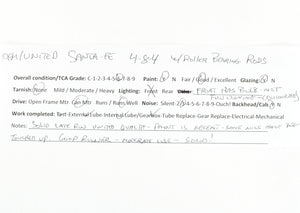 GEM/UNITED SANTA-FE 4-8-4 W/ROLLER BEARING RODS
Overall condition/TCA Grade: C-1-2-3-4-5-6-7-8-9 Paint: Y N Fair / Good / Excellent Glazing: Y N
Tarnish: None Mild / Moderate / Heavy Lighting: Front Rear FRONT HAS BULB - NOT
Drive: Open Frame Mtr Can Mtr Runs / Runs Well Noise: Silent-2-3-4-5-6-7-8-9-Ouch! Backhead/Cab: Y N
Work completed: Test-External Lube-Internal Lube/Gearbox-Tube Replace-Gear Replace-Electrical-Mechanical
Notes: SOLID LATE RUN UNITED QUALITY - PAINT IS DECENT - SOME
TOUCHED UP. GOOD RUNNER - MODERATE USE - SOLID!